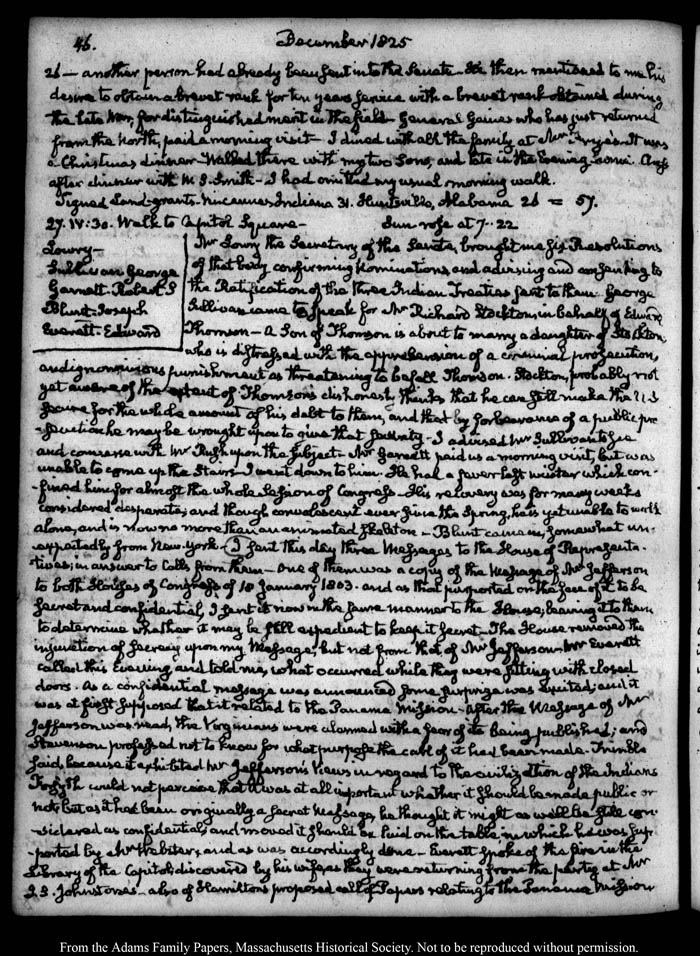 46. December 1825
26 — another person had already been sent into the Senate — He then mentioned to me his
desire to obtain a brevet rank for ten years service with a brevet rank obtained during
the late War, for distinguished merit in the field. General Gaines who has just returned
from the North, paid a morning visit — I dined with all the family at Mr Frye's. It was
a Christmas dinner — Walked there with my two Sons, and late in the Evening home.
after dinner with W. S. Smith — I had omitted my usual morning walk.
Signed Land-grants. Vincennes Indiana 31. Huntsville, Alabama 26 = 57.
27. IV:30. Walk to Capitol Square — Sun rose at 7..22
Lowry —
Sullivan George
Garnett. Robert S
Blunt. Joseph
Everett. Edward
Mr Lowry the Secretary of the Senate, brought me six Resolutions
of that body confirming Nominations, and advising and consenting to
the Ratification of the three Indian Treaties sent to them. George
Sullivan came to speak for Mr Richard Stockton, in behalf of Edward
Thomson — A Son of Thomson is about to marry a daughter of Stockton,
who is distressed with the apprehension of a criminal prosecution,
and ignominious punishment as threatening to befall Thomson. Stockton, probably not
yet aware of the extent of Thomson's dishonesty thinks that he can still make the U.S
secure for the whole amount of his debt to them, and that by forbearance of a public pro-
-secution he may be wrought upon to give that security — I advised Mr Sullivan to see
and converse with Mr Rush upon the subject — Mr Garnett paid us a morning visit, but was
unable to come up the Stairs. I went down to him. He had a fever last winter which con-
-fined him for almost the whole Session of Congress. His recovery was for many weeks
considered desperate; and though convalescent ever since the Spring, he is yet unable to walk
alone, and is now no more than an animated skeleton — Blunt came in, somewhat un-
-expectedly from New-York — I sent this day three Messages to the House of Representa-
-tives; in answer to Calls from them — One of them was a copy of the Message of Mr Jefferson
to both Houses of Congress of 18 January 1803. and as that purported on the face of it to be
secret and confidential, I sent it now in the same manner to the House; leaving it to them
to determine whether it may be still expedient to keep it secret — The House removed the
injunction of secrecy upon my Message; but not from that of Mr Jefferson — Mr Everett
called this Evening, and told me, what occurred while they were sitting with closed
doors. As a confidential message was announced some surprize was excited; and it
was at first supposed that it related to the Panama Mission — After the Message of Mr
Jefferson was read, the Virginians were alarmed with a fear of its being published; and
Stevenson professed not to know for what purpose the call of it had been made. Trimble
said, because it exhibited Mr Jefferson's views in regard to the civilization of the Indians
Forsyth could not perceive that it was at all important whether it should be made public or
not; but as it had been originally a secret Message, he thought it might as well be still con-
-sidered as confidential; and moved it should be laid on the table, in which he was sup-
-ported by Mr Webster; and as was accordingly done — Everett spoke of the fire in the
Library of the Capitol; discovered by his wife, as they were returning from the party at Mr
J. S. Johnston's — also of Hamilton's proposed call of Papers relating to the Panama Mission
From the Adams Family Papers, Massachusetts Historical Society. Not to be reproduced without permission.